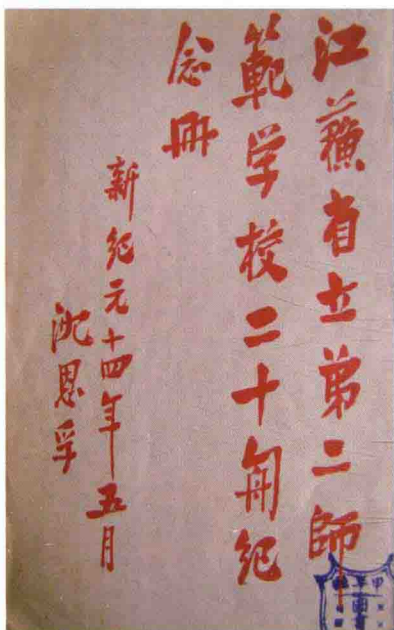 江蘇省立第二師
範学校二十周紀
念冊
新紀元十四年五月
沈恩孚